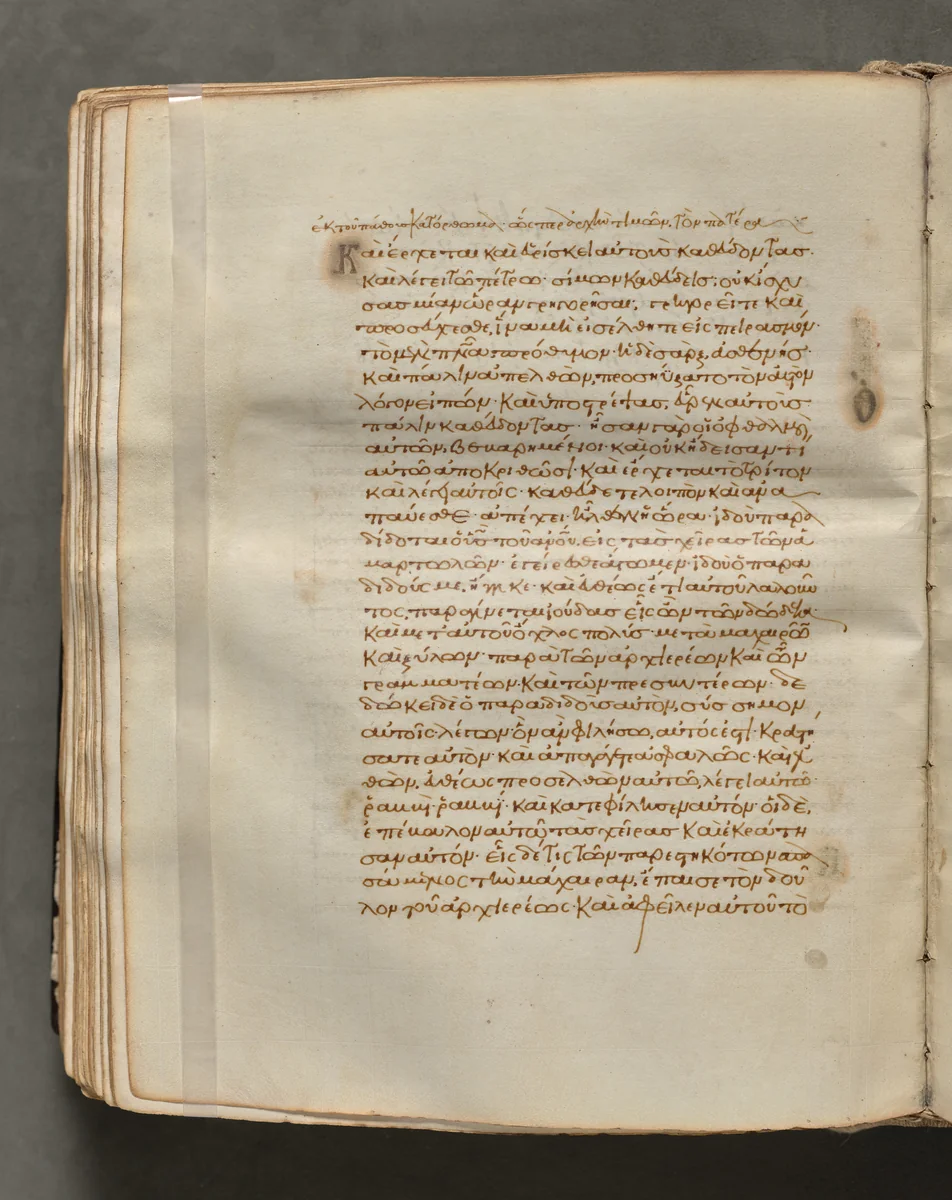 ἐκ τοῦ πάθους κατόρθωμα· ὥσπερ ἀρχὴν τιμῶν, τὸν πατέρα
Καὶ ἔρχεται καὶ εὑρίσκει αὐτοὺς καθεύδοντας·
καὶ λέγει τῶ πέτρω· σίμων καθεύδεις; οὐκ ἴσχυ
σας μίαν ὥραν γρηγορῆσαι; γρηγορεῖτε καὶ
προσεύχεσθε, ἵνα μὴ εἰσέλθητε εἰς πειρασμόν·
τὸ μὲν πνα πρόθυμον· ἡ δὲ σαρξ, ἀσθενής·
καὶ πάλιν ἀπελθὼν, προσηύξατο τὸν αὐτὸν
λόγον εἰπών· καὶ ὑποστρέψας, εὗρεν αὐτοὺς
πάλιν καθεύδοντας· ἦσαν γὰρ οἱ ὀφθαλμοὶ
αὐτῶν, βεβαρημένοι· καὶ οὐκ ἤδεισαν τί
αὐτῶ ἀποκριθῶσι· καὶ ἔρχεται τὸ τρίτον
καὶ λέγει αὐτοῖς· καθεύδετε λοιπὸν καὶ ἀνα
παύεσθε· ἀπέχει· ἦλθεν ἡ ὥρα· ἰδοὺ παρα
δίδοται ὁ υς τοῦ ανου, εἰς τὰς χεῖρας τῶν ἁ
μαρτωλῶν· ἐγείρεσθε ἄγωμεν· ἰδοὺ ὁ παρα
διδούς με, ἤγγικε· καὶ εὐθέως ἔτι αὐτοῦ λαλοῦν
τος, παραγίνεται ἰούδας εἷς ὢν τῶν δώδεκα·
καὶ μετ' αὐτοῦ ὄχλος πολύς· μετὰ μαχαιρῶν
καὶ ξύλων· παρὰ τῶν ἀρχιερέων καὶ τῶν
γραμματέων· καὶ τῶν πρεσβυτέρων· δε
δώκει δὲ ὁ παραδιδοὺς αὐτὸν, σύσσημον
αὐτοῖς λέγων· ὃν ἂν φιλήσω, αὐτός ἐστι· κρατή
σατε αὐτὸν· καὶ ἀπαγάγετε ἀσφαλῶς· καὶ ἐλ
θὼν, εὐθέως προσελθὼν αὐτῶ, λέγει αὐτῶ·
ῥαββί· ῥαββί· καὶ κατεφίλησεν αὐτόν· οἱ δὲ,
ἐπέβαλον αὐτῶ τὰς χεῖρας καὶ ἐκράτη
σαν αὐτόν· εἷς δέ τις τῶν παρεστηκότων σπα
σάμενος τὴν μάχαιραν, ἔπαισε τὸν δοῦ
λον τοῦ ἀρχιερέως· καὶ ἀφεῖλεν αὐτοῦ τὸ